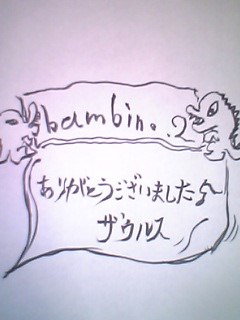 bambino.2
ありがとうございました♪
ザウルス